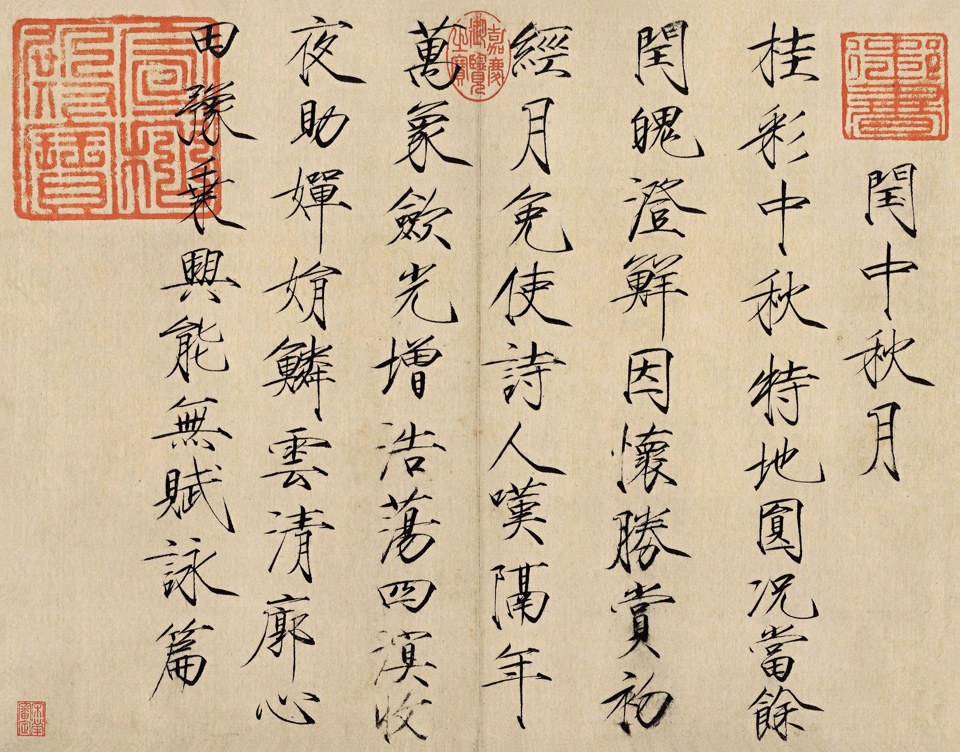 閏中秋月
桂彩中秋特地圓況當餘
閏魄澄鮮因懷勝賞初
經月免使詩人嘆隔年
萬象歛光增浩蕩四溟收
夜助嬋娟鱗雲清廓心
田豫乗興能無賦詠篇
嘉慶御覽之寶